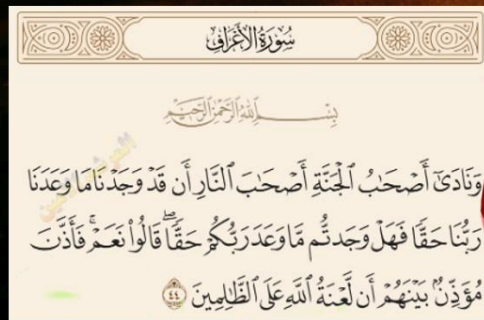 سُورَةُ الْأَعْرَافِ
بِسْمِ اللَّهِ الرَّحْمَٰنِ الرَّحِيمِ
وَنَادَىٰٓ أَصْحَٰبُ ٱلْجَنَّةِ أَصْحَٰبَ ٱلنَّارِ أَن قَدْ وَجَدْنَا مَا وَعَدَنَا
رَبُّنَا حَقًّا فَهَلْ وَجَدتُّم مَّا وَعَدَ رَبُّكُمْ حَقًّاۖ قَالُوا۟ نَعَمْۚ فَأَذَّنَ
مُؤَذِّنٌۢ بَيْنَهُمْ أَن لَّعْنَةُ ٱللَّهِ عَلَى ٱلظَّٰلِمِينَ ٤٤